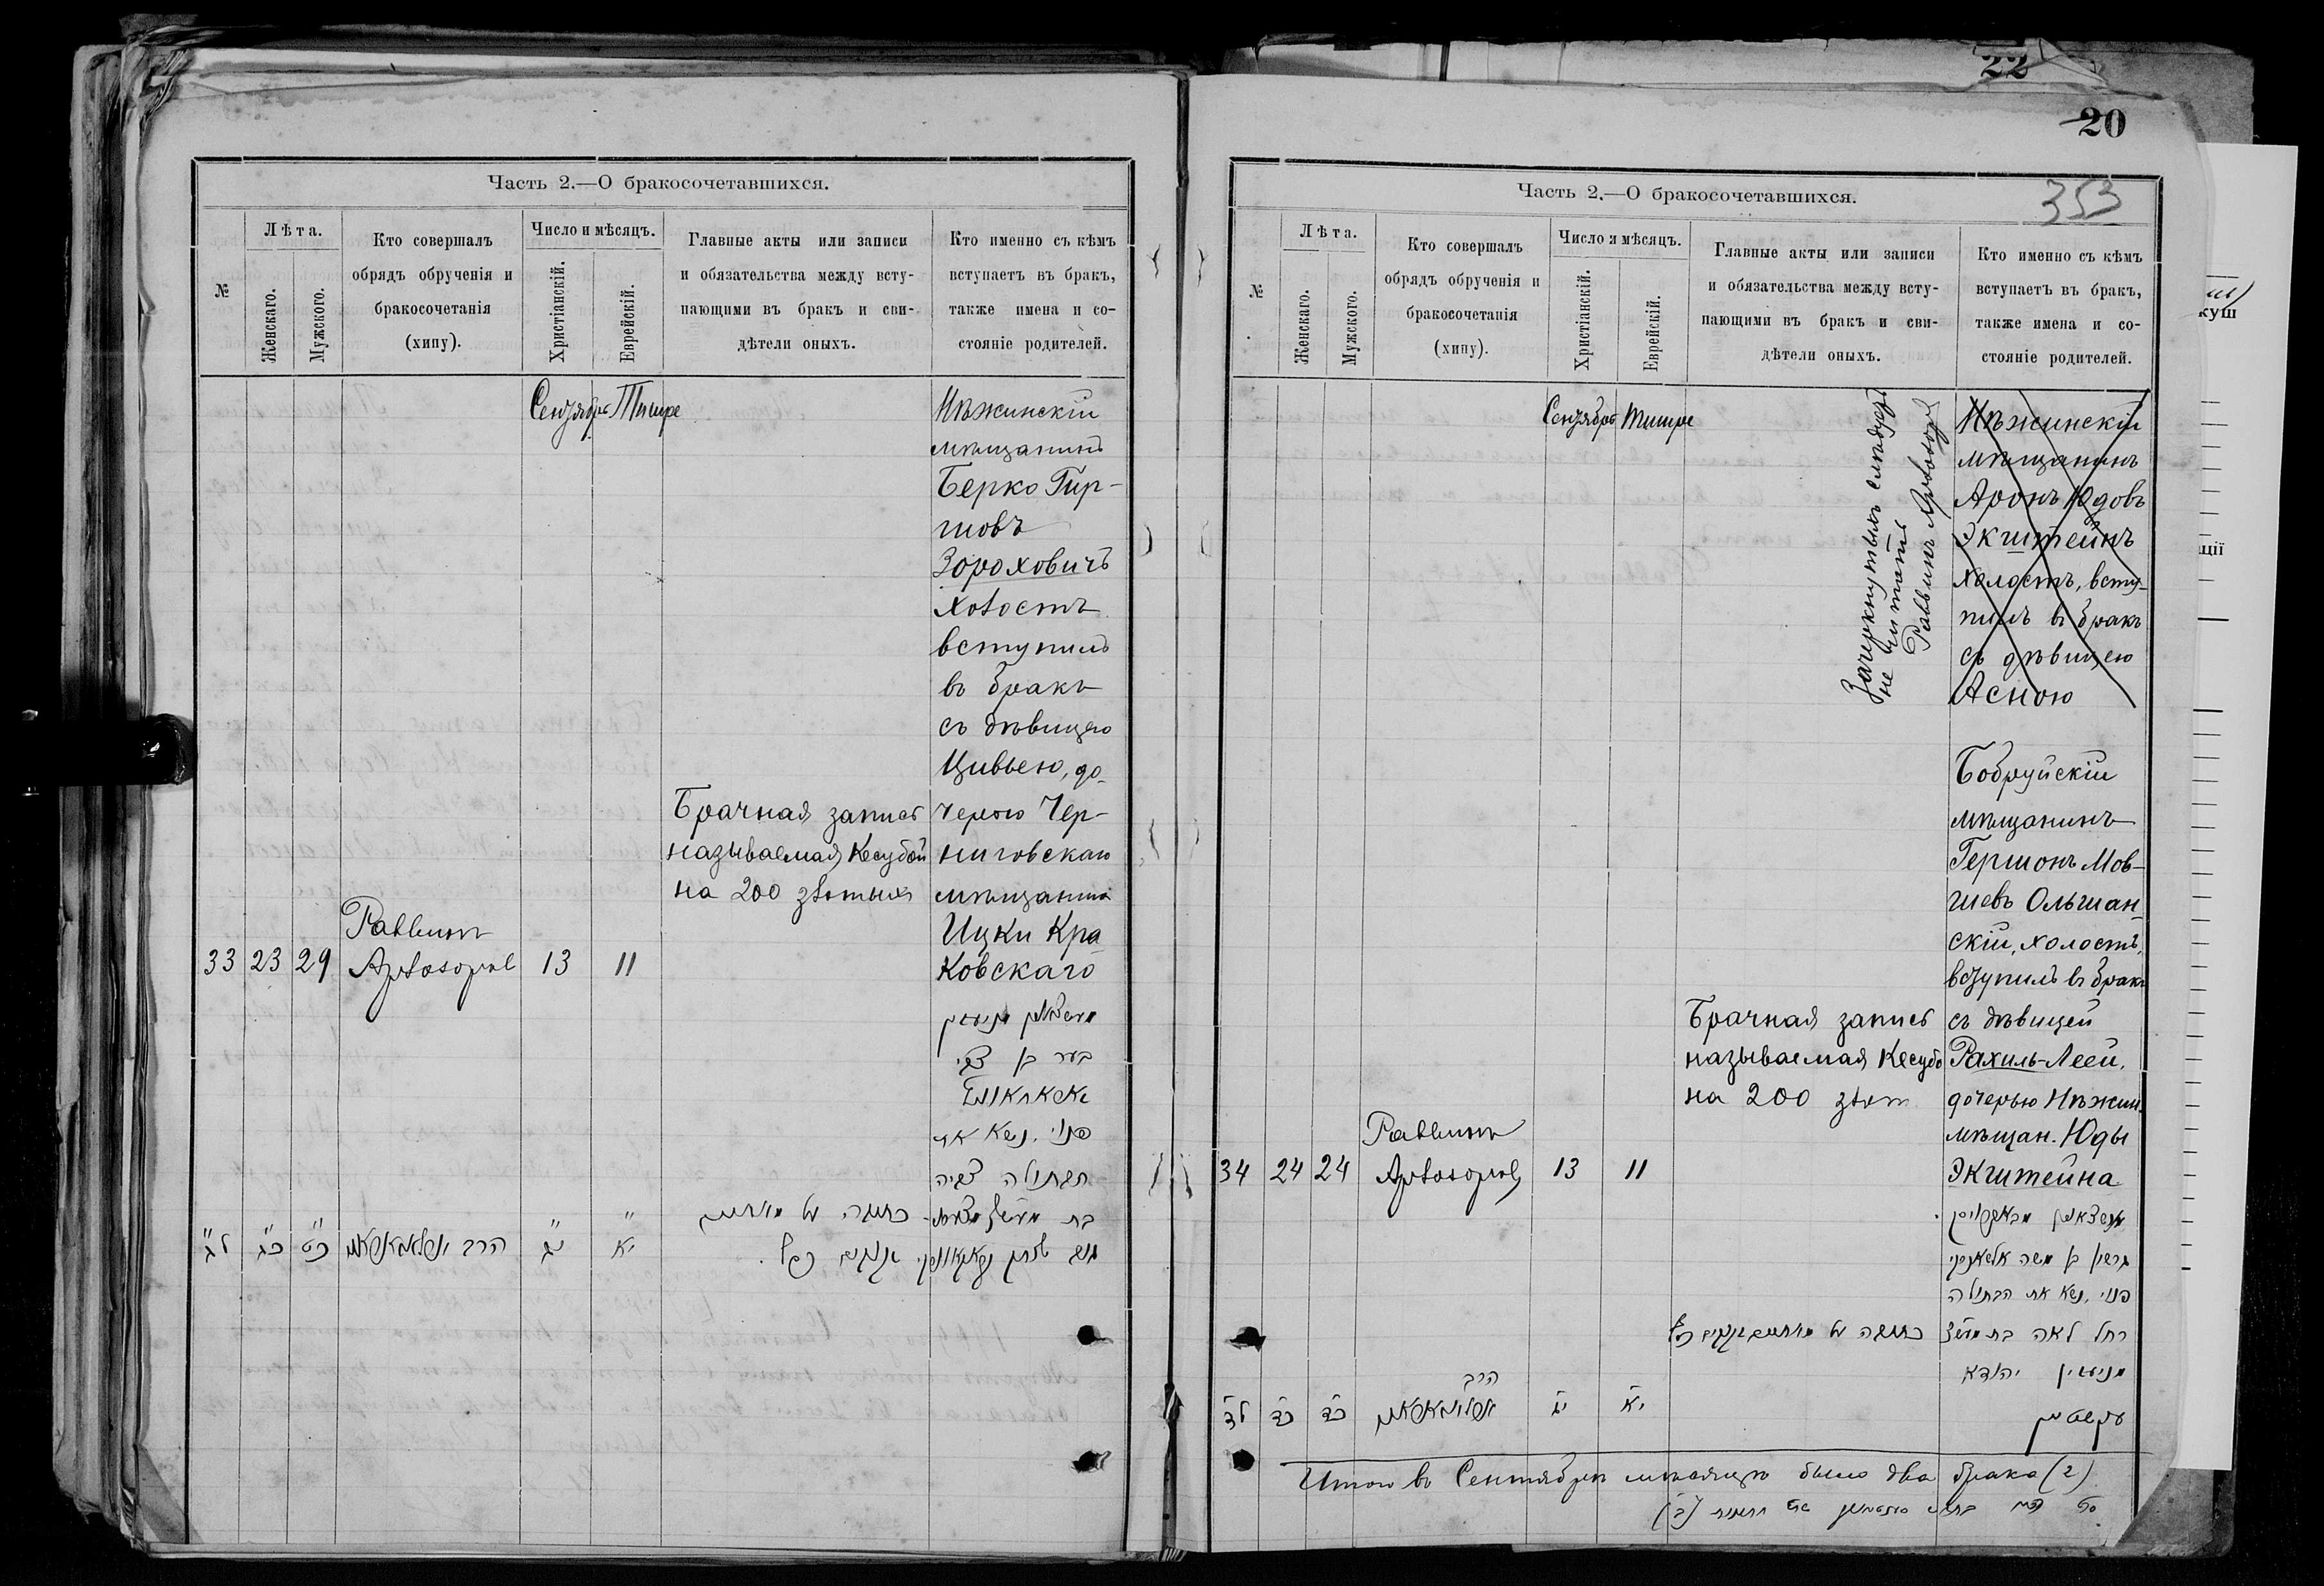 Часть 2.—О бракосочетавшихся.
№
Лѣта.
Женскаго.
Мужского.
Кто совершалъ
обрядъ обрученія и
бракосочетанія
(хипу).
Число и мѣсяцъ.
Христіанскій.
Еврейскій.
Главные акты или записи
и обязательства между всту-
пающими въ бракъ и сви-
дѣтели оныхъ.
Кто именно съ кѣмъ
вступаетъ въ бракъ,
также имена и со-
стояніе родителей.
Сентябрь Тишре
33 23 29
Раввинъ
13 11
Брачная запись
называемая Кесубой
на 200 злотыхъ
Нѣжинскій
мѣщанинъ
Берко Гир-
шовъ
Зороховичъ
холостъ
вступилъ
въ бракъ
съ дѣвицею
Цивьею, до-
черью Чер-
ниговскаго
мѣщанина
Ицки Кра
ковскаго
פנוי נשא את
הבתולה צביה
ל״ג כ״ג כ״ט הרב
י״ג
י״א
22
20
353
Часть 2.—О бракосочетавшихся.
№
Лѣта.
Женскаго.
Мужского.
Кто совершалъ
обрядъ обрученія и
бракосочетанія
(хипу).
Число и мѣсяцъ.
Христіанскій.
Еврейскій.
Главные акты или записи
и обязательства между всту-
пающими въ бракъ и сви-
дѣтели оныхъ.
Кто именно съ кѣмъ
вступаетъ въ бракъ,
также имена и со-
стояніе родителей.
Сентябрь Тишре
Зачеркнутыхъ слѣдуетъ
не читать
Раввинъ
Нѣжинскій
мѣщанинъ
Аронъ Юдовъ
Экштейнъ
холостъ, всту-
пилъ въ бракъ
съ дѣвицею
Асною
34 24 24
Раввинъ
13 11
Брачная запись
называемая Кесубо
на 200 злот
Бобруйскій
мѣщанинъ
Гершонъ Мов-
шевъ Ольшан-
скій, холостъ,
вступилъ въ бракъ
съ дѣвицей
Рахиль-Леей,
дочерью Нѣжин.
мѣщан. Юды
Экштейна
פנוי נשא את הבתולה
רחל לאה בת
יהודא
הרב
ל״ד כ״ד כ״ד
י״ג
י״א
Итого въ Сентябрѣ мѣсяцѣ было два брака (2)
куш
ції